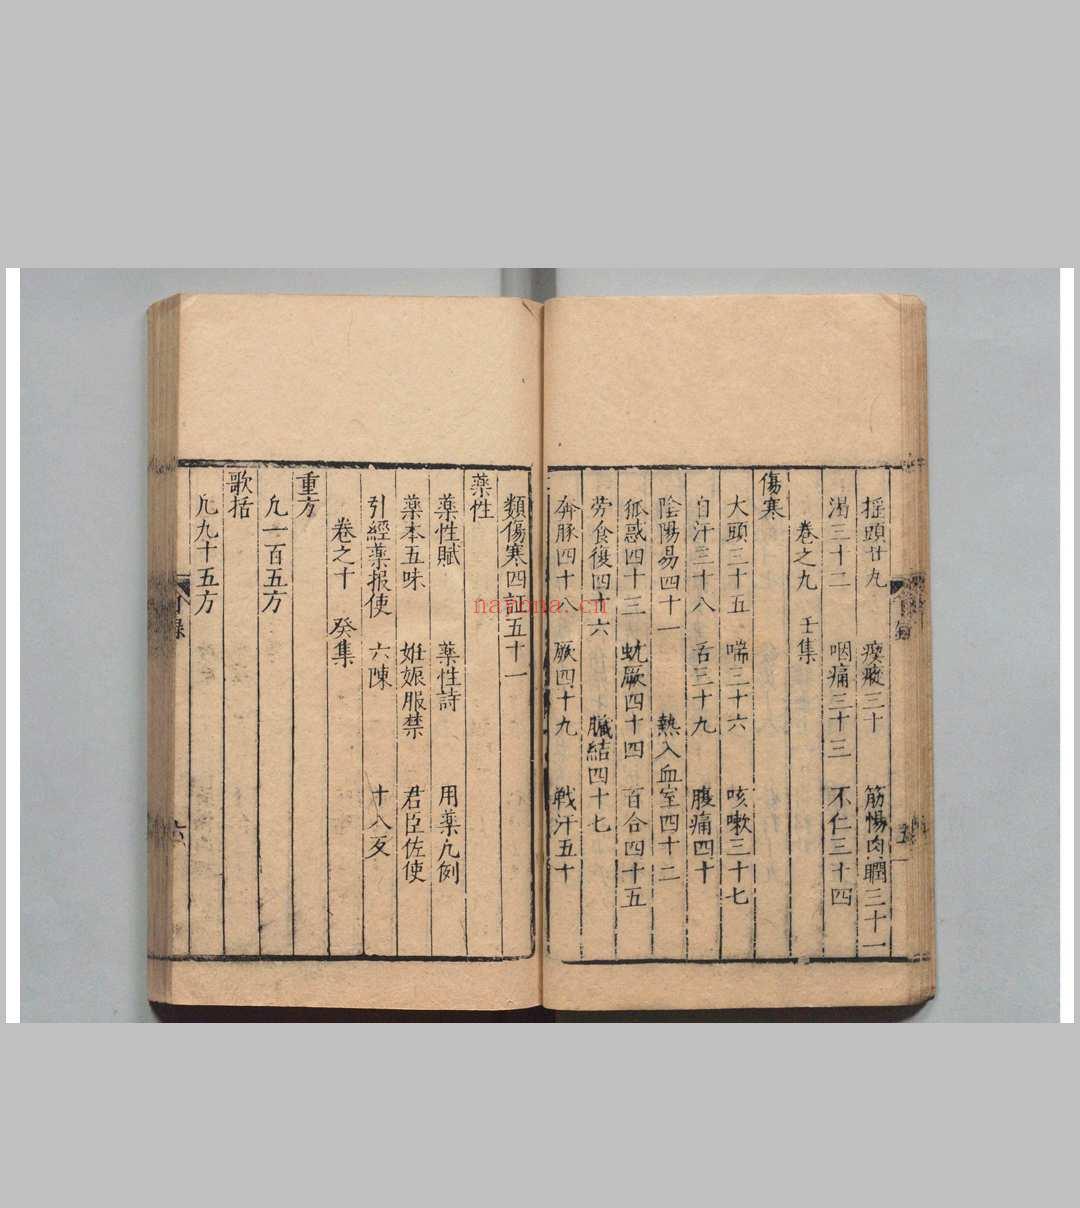 搖頭廿九　瘈瘲三十　筋惕肉瞤三十一
渴三十二　咽痛三十三　不仁三十四
卷之九　壬集
傷寒
大頭三十五　喘三十六　咳嗽三十七
自汗三十八　舌三十九　腹痛四十
陰陽易四十一　熱入血室四十二
狐惑四十三　蚘厥四十四　百合四十五
勞食復四十六　臟結四十七
奔豚四十八　厥四十九　戰汗五十
類傷寒四証五十一
藥性
藥性賦　藥性詩　用藥凡例
藥本五味　妊娠服禁　君臣佐使
引經藥报使　六陳　十八反
卷之十　癸集
重方
凡一百五方
歌括
凡九十五方
nayona.cn